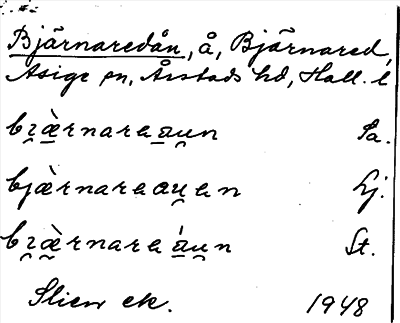 Bjärnaredån, å, Bjärnared,
Asige sn, Årstads hd, Hall. l
bɪ̯æ̀rnaraa̲u̯n Sa.
bjæ̀rnaraau̯an Lj.
bɪ̯æ̀rnaraá̲u̯n St.
ek. 1948